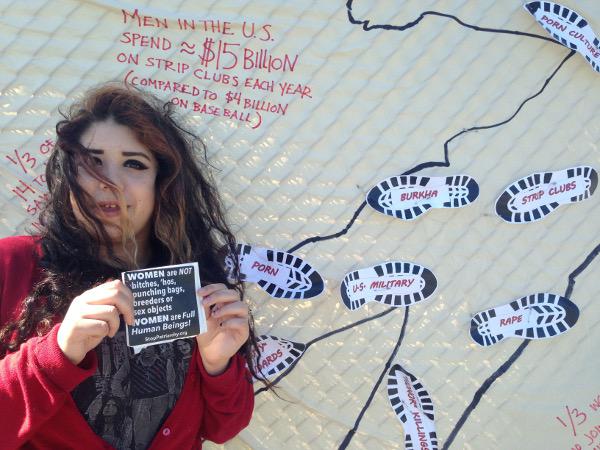 MEN IN THE U.S.
SPEND ≈ $15 BILLION
ON STRIP CLUBS EACH YEAR
(COMPARED TO $4 BILLION
ON BASEBALL)
1/3 OF
14 TO
PORN CULTURE
BURKHA
STRIP CLUBS
PORN
U.S. MILITARY
RAPE
KILLINGS
WOMEN are NOT
bitches, 'hos,
punching bags,
breeders or
sex objects
WOMEN are Full
Human Beings!
StopPatriarchy.org
1/3